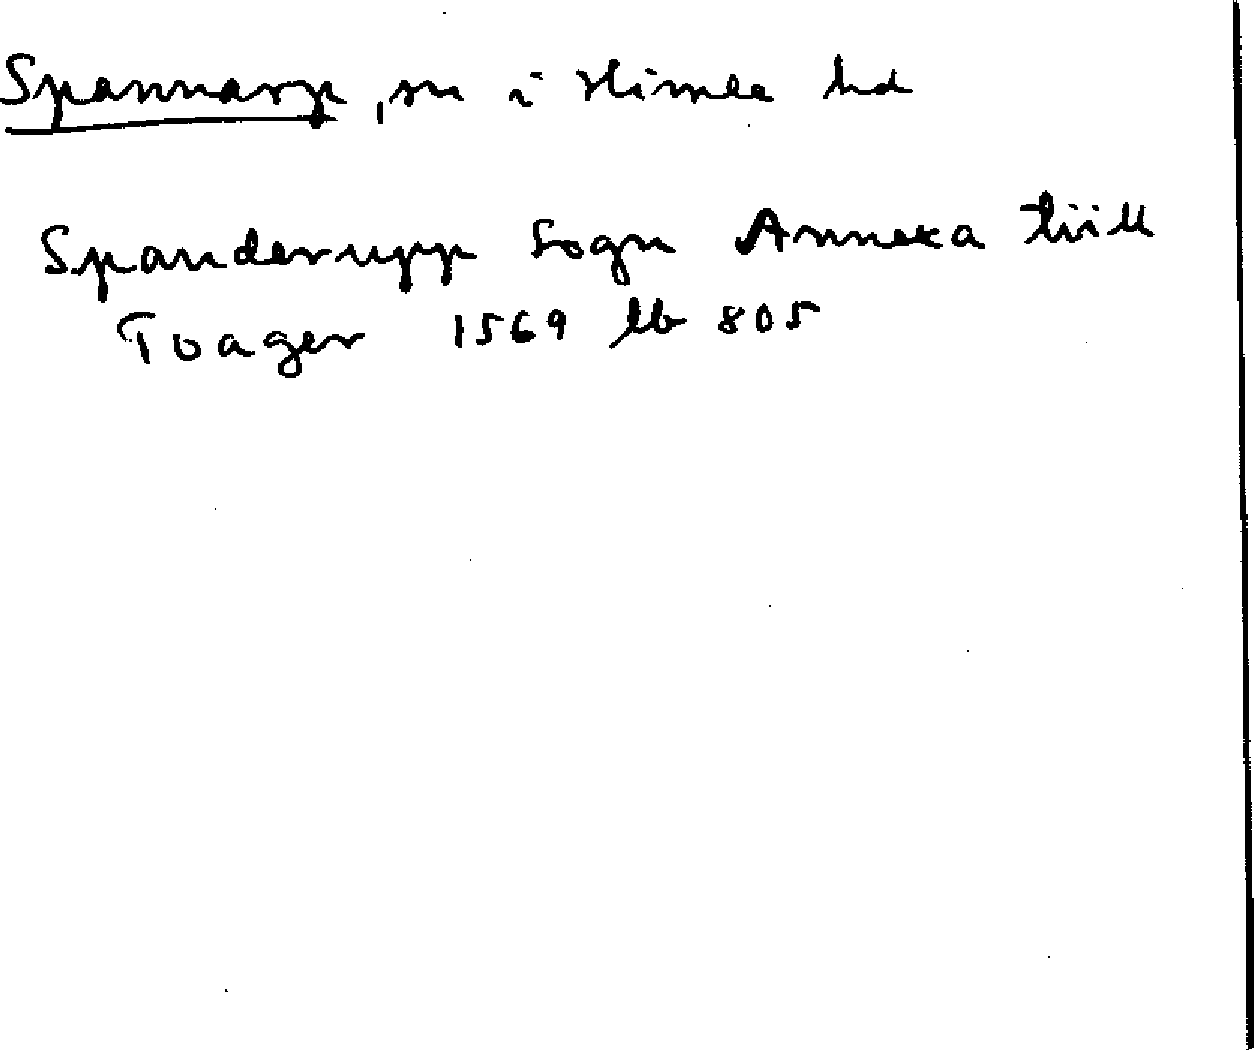 Spannarp, sn i Himle hd
Spanderupp Sogn Annexa tiill
Toager 1569 lb 805